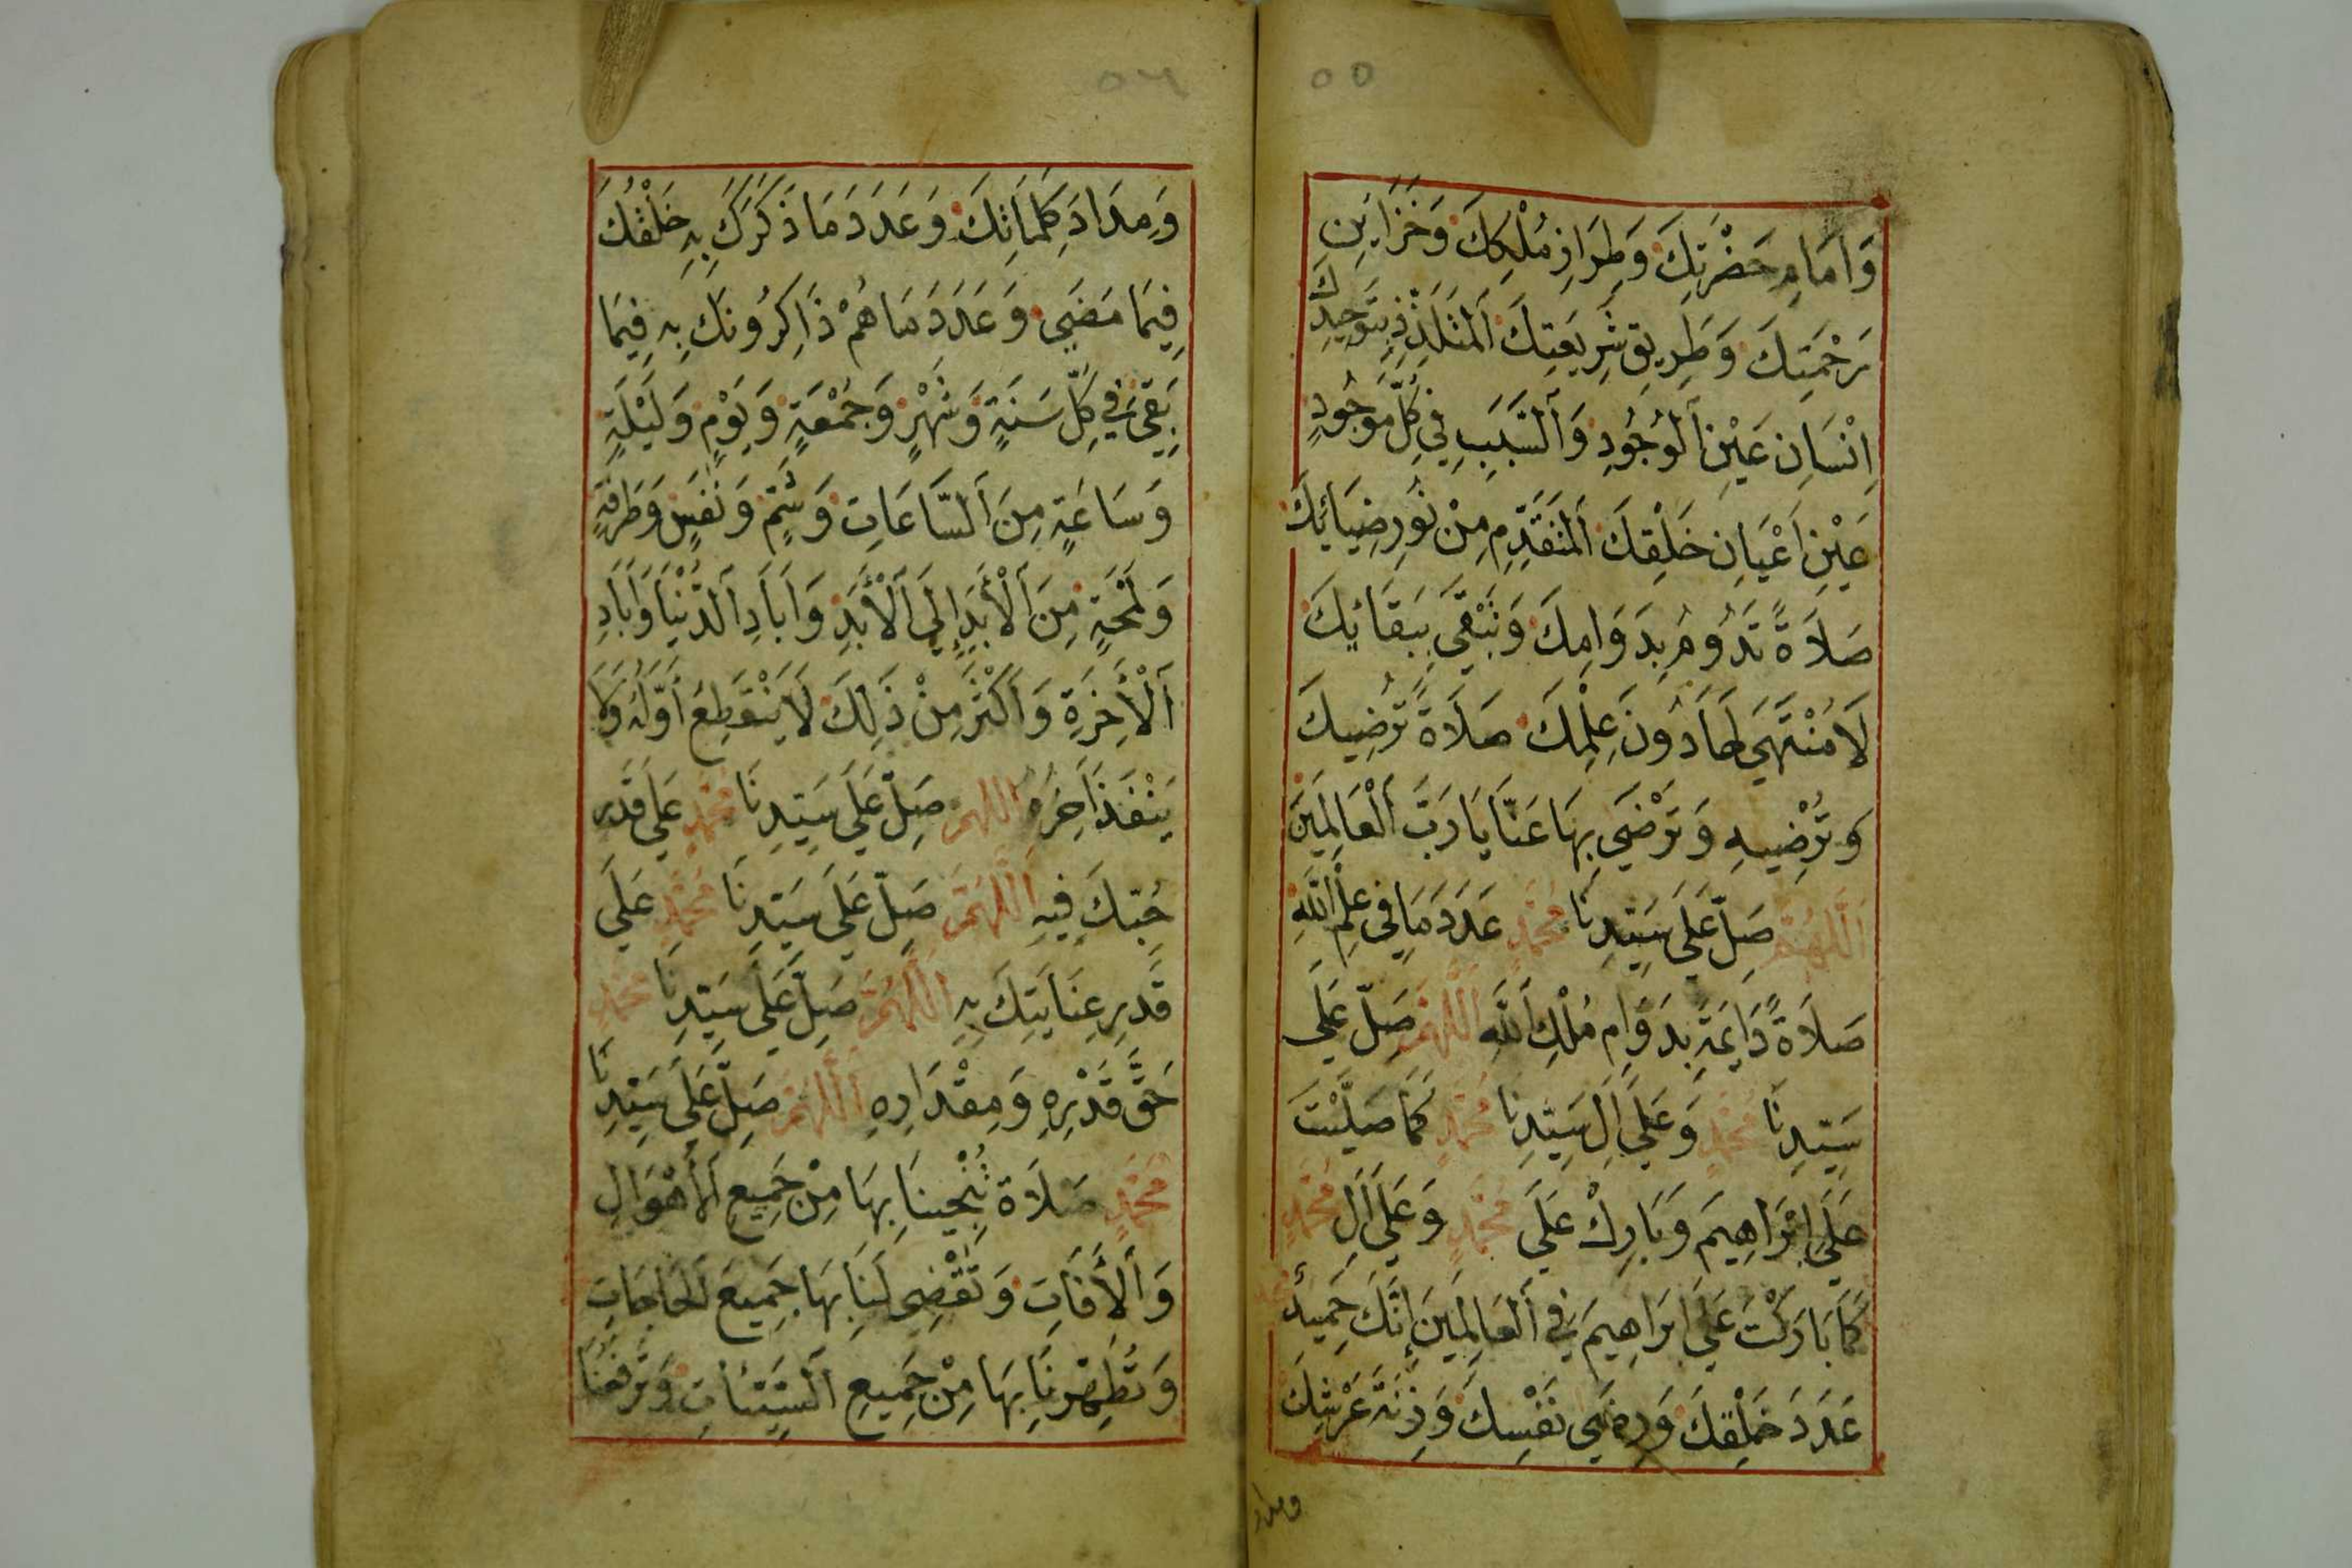 ٥٥
وَاِمَامِ حَضْرَتِكَ وَطِرَازِ مُلْكِكَ وَخَزَايِنِ
رَحْمَتِكَ وَطَرِيقِ شَرِيعَتِكَ اَلْمُتَلَذِّذِ بِتَوْحِيدِكَ
اِنْسَانِ عَيْنِ اَلْوُجُودِ وَاَلسَّبَبِ فِي كُلِّ مَوْجُودٍ
عَيْنِ اَعْيَانِ خَلْقِكَ اَلْمُتَقَدِّمِ مِنْ نُورِ ضِيَائِكَ
صَلَاةً تَدُومُ بِدَوَامِكَ وَتَبْقَى بِبَقَائِكَ
لَا مُنْتَهَى لَهَا دُونَ عِلْمِكَ صَلَاةً تُرْضِيكَ
وَتُرْضِيهِ وَتَرْضَى بِهَا عَنَّا يَا رَبَّ اَلْعَالَمِينَ
اَللَّهُمَّ صَلِّ عَلَى سَيِّدِنَا مُحَمَّدٍ عَدَدَ مَا فِي عِلْمِ اللَّهِ
صَلَاةً دَايِمَةً بِدَوَامِ مُلْكِ اَللَّهِ اَللَّهُمَّ صَلِّ عَلَى
سَيِّدِنَا مُحَمَّدٍ وَعَلَى اَلِ سَيِّدِنَا مُحَمَّدٍ كَمَا صَلَّيْتَ
عَلَى اِبْرَاهِيمَ وَبَارِكْ عَلَى مُحَمَّدٍ وَعَلَى اَلِ مُحَمَّدٍ
كَمَا بَارَكْتَ عَلَى اِبْرَاهِيمَ فِي اَلْعَالَمِينَ إِنَّكَ حَمِيدٌ
عَدَدَ خَلْقِكَ وَرِضَى نَفْسِكَ وَزِنَةَ عَرْشِكَ
ومداد
٥٦
وَمِدَادَ كَلِمَاتِكَ وَعَدَدَ مَا ذَكَرَكَ بِهِ خَلْقُكَ
فِيمَا مَضَى وَعَدَدَ مَا هُمْ ذَاكِرُونَكَ بِهِ فِيمَا
بَقِيَ فِي كُلِّ سَنَةٍ وَشَهْرٍ وَجُمْعَةٍ وَيَوْمٍ وَلَيْلَةٍ
وَسَاعَةٍ مِنَ اَلسَّاعَاتِ وَشَمٍّ وَنَفَسٍ وَطَرْفَةٍ
وَلَمْحَةٍ مِنَ اَلْأَبَدِ إِلَى اَلْأَبَدِ وَاَبَادِ اَلدُّنْيَا وَاَبَادِ
اَلْأَخِرَةِ وَاَكْثَرَ مِنْ ذَلِكَ لَا يَنْقَطِعُ أَوَّلُهُ وَلَا
يَنْفَدُ اَخِرُهُ اللهم صَلِّ عَلَى سَيِّدِنَا مُحَمَّدٍ عَلَى قَدْرِ
حُبِّكَ فِيهِ اَللَّهُمَّ صَلِّ عَلَى سَيِّدِنَا مُحَمَّدٍ عَلَى
قَدْرِ عِنَايَتِكَ بِهِ اَللَّهُمَّ صَلِّ عَلَى سَيِّدِنَا مُحَمَّدٍ
حَقَّ قَدْرِهِ وَمِقْدَارِهِ اَللَّهُمَّ صَلِّ عَلَى سَيِّدِنَا
مُحَمَّدٍ صَلَاةً تُنْجِينَا بِهَا مِنْ جَمِيعِ اَلْأَهْوَالِ
وَاَلْأَفَاتِ وَتَقْضِي لَنَا بِهَا جَمِيعَ اَلْحَاجَاتِ
وَتُطَهِّرُنَا بِهَا مِنْ جَمِيعِ اَلسَّيِّئَاتِ وَتَرْفَعُنَا